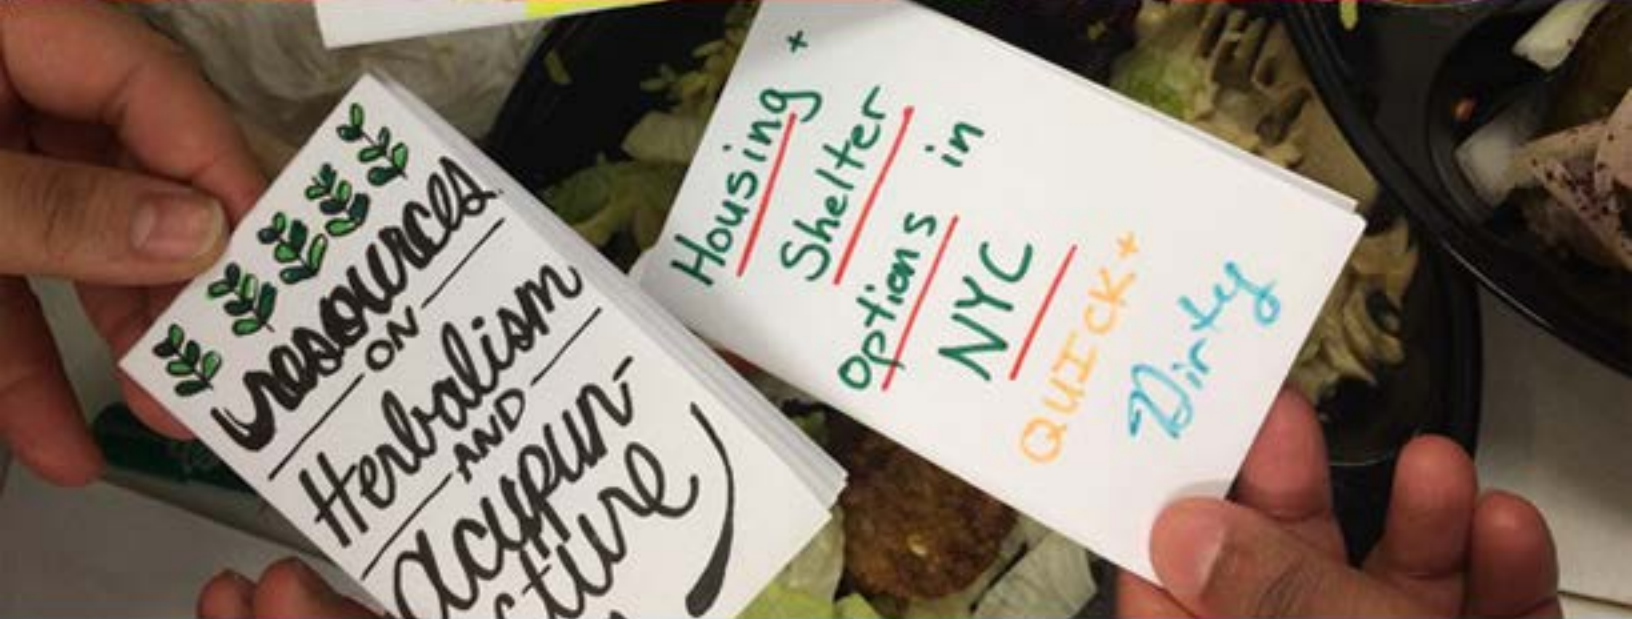 resources
ON
Herbalism
AND
acupun-
cture
Housing +
Shelter
Options in
NYC
QUICK+
Dirty